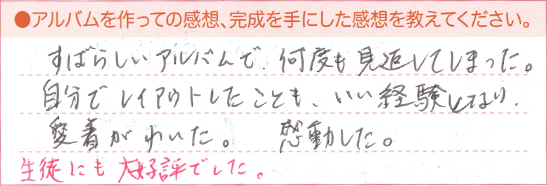 ●アルバムを作っての感想、完成を手にした感想を教えてください。
すばらしいアルバムで、何度も見返してしまった。
自分でレイアウトしたことも、いい経験となり、
愛着がわいた。 感動した。
生徒にも大好評でした。